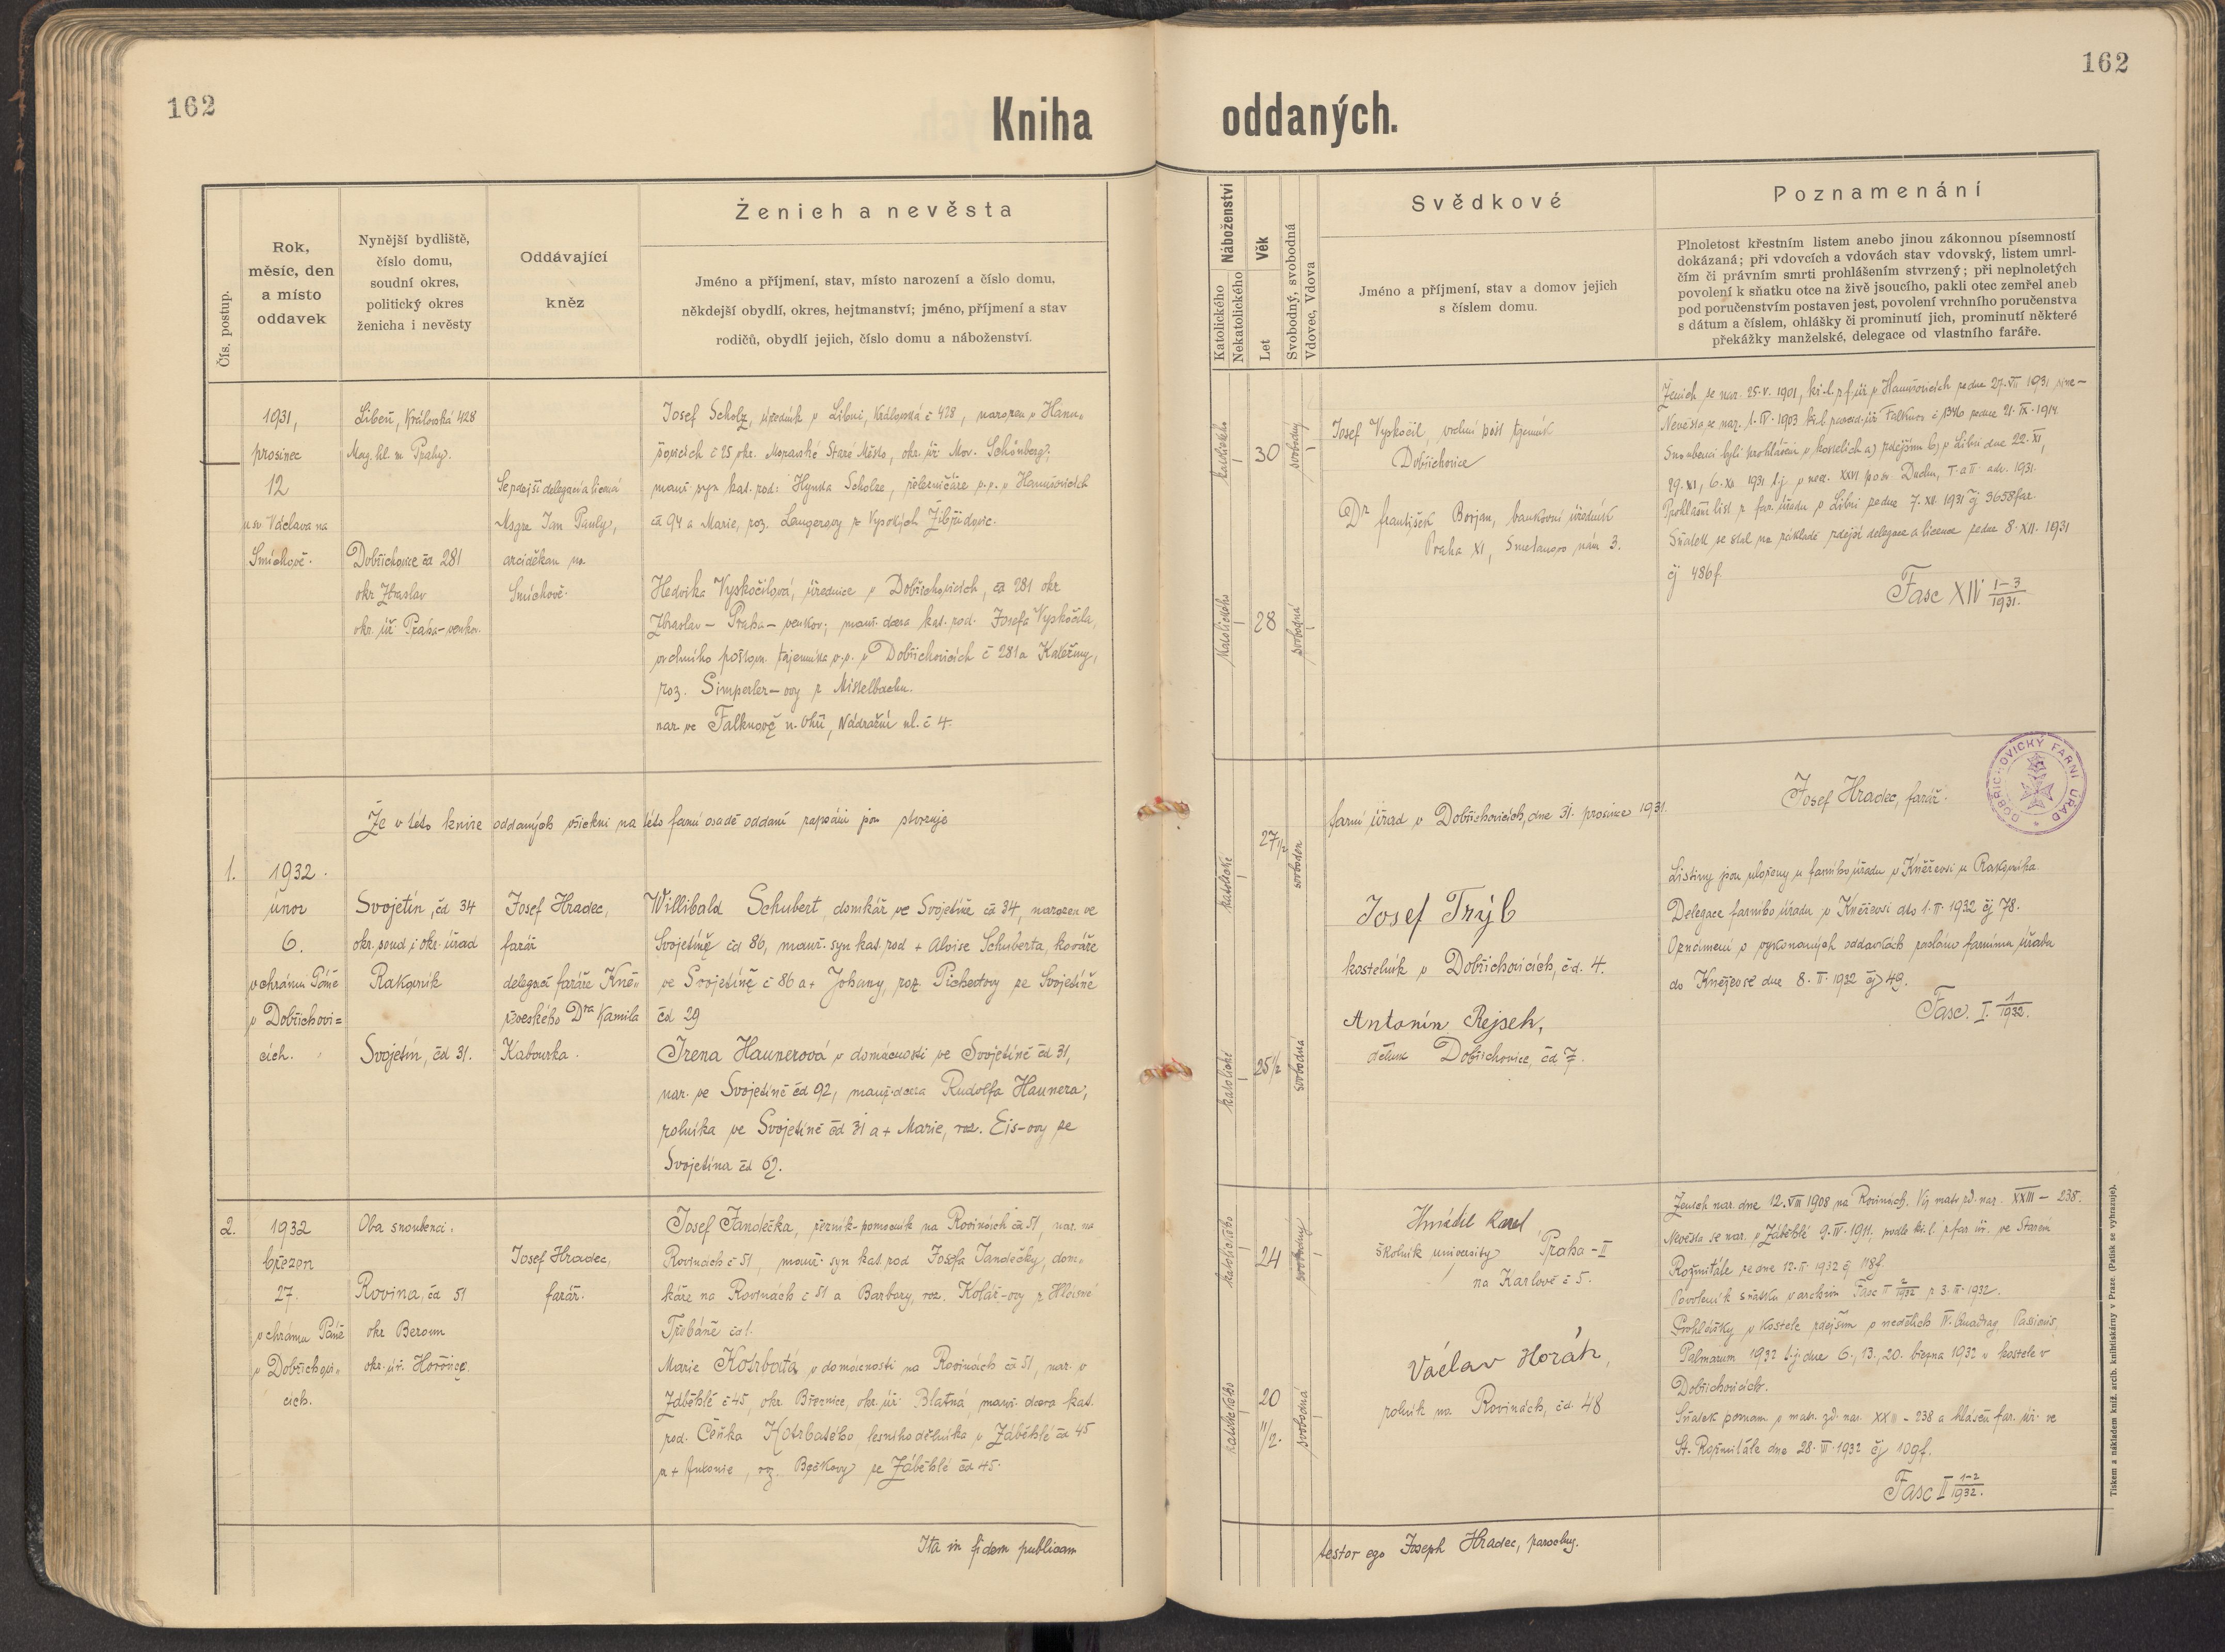 162
162
Kniha oddaných.
Čís. postup.
Rok,
měsíc, den
a místo
oddavek
Nynější bydliště,
číslo domu,
soudní okres,
politický okres
ženicha i nevěsty
Oddávající
kněz
Ženich a nevěsta
Jméno a příjmení, stav, místo narození a číslo domu,
někdejší obydlí, okres, hejtmanství; jméno, příjmení a stav
rodičů, obydlí jejich, číslo domu a náboženství.
Náboženství
Katolického
Nekatolického
Věk
Let
Svobodný, svobodná
Vdovec, Vdova
Svědkové
Jméno a příjmení, stav a domov jejich
s číslem domu.
Poznamenání
Plnoletost křestním listem anebo jinou zákonnou písemností
dokázaná; při vdovcích a vdovách stav vdovský, listem umrl-
čím či právním smrti prohlášením stvrzený; při neplnoletých
povolení k sňatku otce na živě jsoucího, pakli otec zemřel aneb
pod poručenstvím postaven jest, povolení vrchního poručenstva
s dátum a číslem, ohlášky či prominutí jich, prominutí některé
překážky manželské, delegace od vlastního faráře.
1931,
prosinec
12
u sv. Václava na
Smíchově.
Libeň, Královská 428
Mag. hl. m. Prahy.
Dobřichovice čd 281
okr Zbraslav
okr. úř. Praha-venkov.
Se zdejší delegací a licencí
Msgre Jan Pauly,
arciděkan na
Smíchově.
Josef Scholz, úředník v Libni, Královská č 428, narozen v Hanu-
šovicích č 25 okr. Moravské Staré Město, okr. úř. Mor. Schönberg,
manž. syn kat. rod: Hynka Scholze, železničáře v.v. v Hanušovicích
čd 94 a Marie, roz. Langerovy z Vysokých Žibřidovic.
Hedvika Vyskočilová, úřednice v Dobřichovicích, čd 281 okr
Zbraslav - Praha - venkov; manž. dcera kat. rod. Josefa Vyskočila,
vrchního poštovn. tajemníka v.v. v Dobřichovicích č 281 a Kateřiny,
roz. Simperler-ovy z Mistelbachu.
nar. ve Falknově n. Ohří, Nádražní ul. č 4.
katolického
30
svobodný
katolického
28
svobodná
Josef Vyskočil, vrchní pošt tajemník
Dobřichovice
Dr František Borjan, bankovní úředník
Praha XI, Smetanovo nám 3.
Ženich se nar. 25.V. 1901, kř. l. z f. úř. v Hanušovicích ze dne 27.VII 1931
Nevěsta se nar. 1.IV.1903 Falknov č 1346 ze dne 21.IX.1914
Snoubenci byli prohlášeni v kostelích a) zdejším b) v Libni dne 22.XI,
29.XI, 6.XII 1931 t.j. v ned. XXVI po sv. Duchu, I. a II. adv. 1931.
Prohlašní list z far. úřadu v Libni ze dne 7.XII 1931 čj 3658 far
Sňatek se stal na základě zdejší delegace a licence ze dne 8.XII.1931
čj 486 f.
Fasc XIV 1-3/1931.
Že v této knize oddaných všickni na této farní osadě oddaní zapsáni jsou stvrzuje
farní úřad v Dobřichovicích, dne 31. prosince 1931.
Josef Hradec, farář.
DOBŘICHOVICKÝ FARNÍ ÚŘAD
1.
1932.
únor
6.
v chrámu Páně
v Dobřichovi=
cích.
Svojetín, čd 34
okr. soud i okr. úřad
Rakovník
Svojetín, čd 31.
Josef Hradec,
farář
delegací faráře Kně-
ževeského Dra Kamila
Kabourka.
Willibald Schubert, domkář ve Svojetíně čd 34, narozen ve
Svojetíně čd 86, manž. syn kat. rod + Aloise Schuberta, kováře
ve Svojetíně č 86 a + Johany, roz. Pichertovy ze Svojetíně
čd 29
Irena Haunerová v domácnosti ve Svojetíně čd 31,
nar. ve Svojetíně čd 92, manž. dcera Rudolfa Haunera,
rolníka ve Svojetíně čd 31 a + Marie, roz. Eis-ovy ze
Svojetína čd 62.
katolické
27 1/2
svoboden
katolické
25 1/2
svobodná
Josef Trýb
kostelník v Dobřichovicích, čd. 4.
Antonín Rejsek,
dělník Dobřichovice, čd 7.
Listiny jsou uloženy u farního úřadu v Kněževsi u Rakovníka.
Delegace farního úřadu v Kněževsi dto 1.II.1932 čj 78.
Oznámení o vykonaných oddavkách zasláno farnímu úřadu
do Kněževse dne 8.II.1932 čj 49.
Fasc. I. 1/1932.
2.
1932
březen
27.
v chrámu Páně
v Dobřichovi-
cích.
Oba snoubenci:
Rovina, čd 51
okr Beroun
okr. úř. Hořovice.
Josef Hradec,
farář.
Josef Jandečka, řezník-pomocník na Rovinách čd 51, nar. na
Rovinách č 51, manž. syn kat. rod Josefa Jandečky, dom-
káře na Rovinách č 51 a Barbory, roz. Kolář-ovy z Hlásné
Třebáně čd 1.
Marie Kotrbatá, v domácnosti na Rovinách čd 51, nar. v
Zaběhlé č 45, okr. Březnice, okr. úř. Blatná, manž. dcera kat.
rod. Čeňka Kotrbatého lesního dělníka v Záběhlé čd 45
a + Antonie, roz. ze Záběhlé čd 45.
katolického
24
svobodný
katolického
20
11/2.
svobodná
Hmádil Karel
školník university Praha-II
na Karlově č 5.
Václav Horák,
rolník na Rovinách, čd. 48
Ženich nar. dne 12.VIII 1908 na Rovinách. Viz matr zd. nar. XXIII - 238.
Nevěsta se nar. v Záběhlé 9.IV.1911. podle kř. l. z far. úř. ve Starém
Rožmitále ze dne 12.II.1932 čj 118 f.
Povolení k sňatku v archivu Fasc II 2/1932 z 3.III.1932.
Prohlášky v kostele zdejším v nedělích IV. Quadrag, Passionis,
Palmarum 1932 t.j. dne 6., 13., 20. března 1932 v kostele v
Dobřichovicích.
Sňatek poznam. v matr. zd. nar. XXIII - 238 a hlášen far. úř. ve
St. Rožmitále dne 28.III.1932 čj 109 f.
Fasc II 1-2/1932.
Ita in fidem publicam
testor ego Joseph Hradec, parochus.
Tiskem a nákladem kníž. arcib. knihtiskárny v Praze. (Patisk se vyhrazuje).